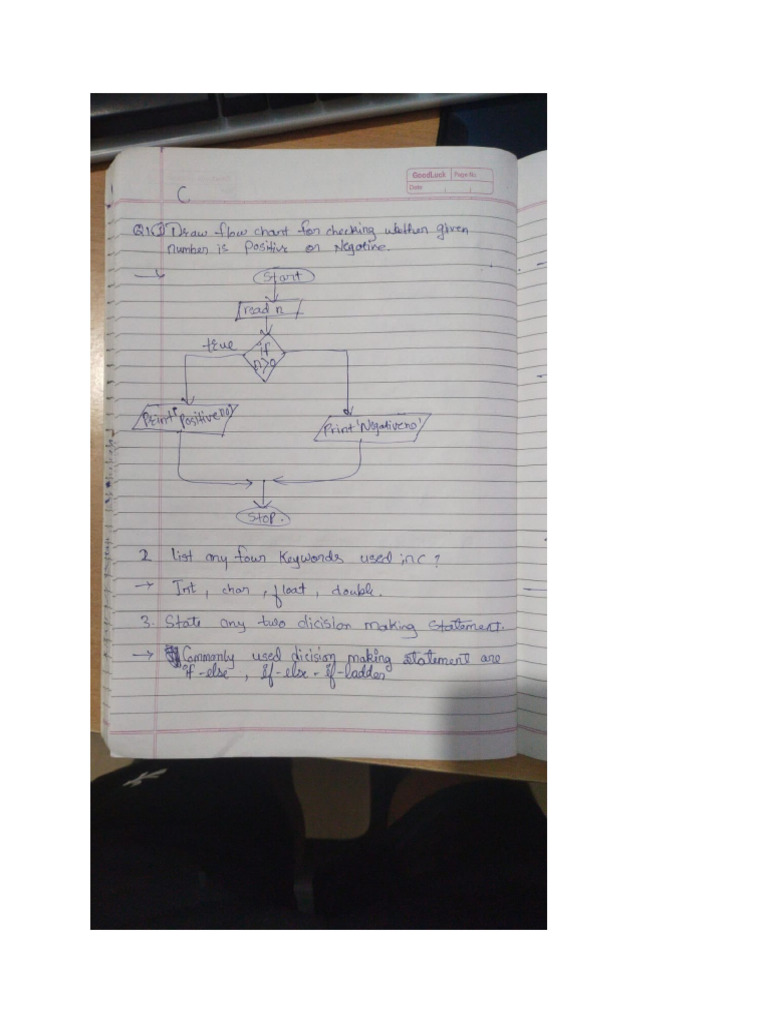 GoodLuck Page No.
Date
C
Q1(1) Draw flow chart for checking whether given
number is Positive or Negative.
Start
read n
true
if
n>0
Print 'Positive no'
Print 'Negative no'
Stop.
2 List any four Keywords used in C?
→ Int, char, float, double.
3. State any two dicision making statement.
→ Commonly used dicision making statement are
if-else, if-else-if-ladder